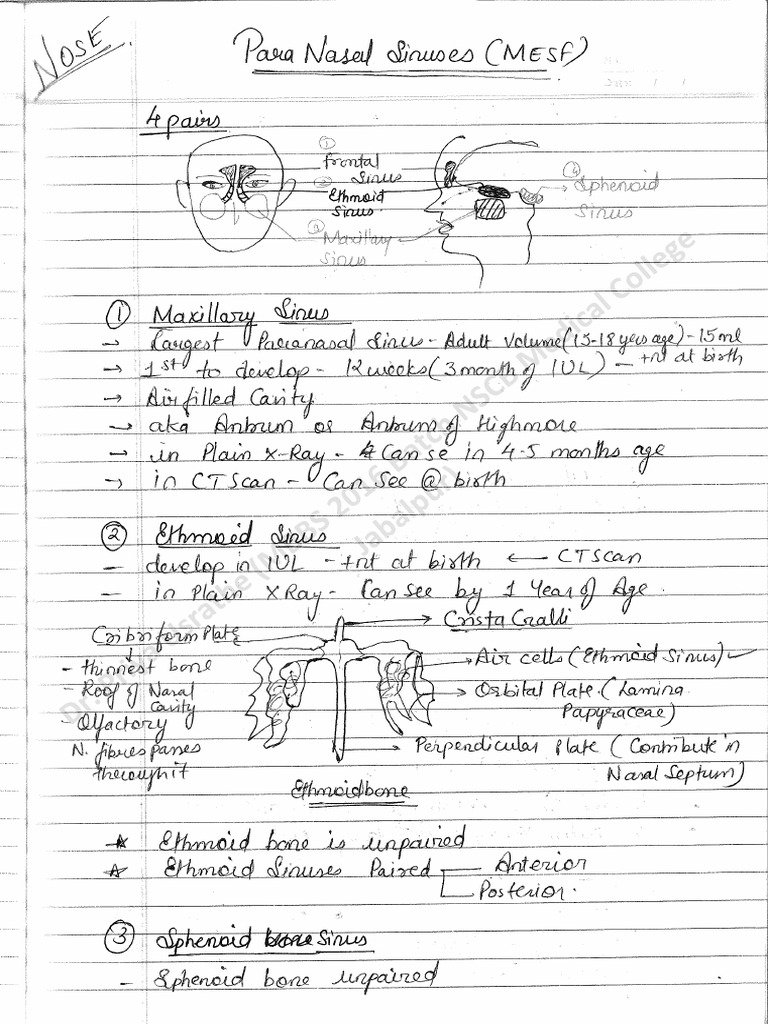 NOSE
Para Nasal Sinuses (MESF)
4 pairs
① Frontal Sinus
② Ethmoid Sinus
③ Maxillary Sinus
④ Sphenoid Sinus
① Maxillary Sinus
→ Largest Paranasal Sinus - Adult Volume (15-18 years age) - 15ml
→ 1st to develop - 12 weeks (3 month of IUL) - +nt at birth
→ Air filled Cavity
→ aka Antrum or Antrum of Highmore
→ in Plain X-Ray - Can se in 4-5 months age
→ in CT Scan - Can See @ birth
② Ethmoid Sinus
- develop in IUL - +nt at birth ← CT Scan
- in Plain X Ray - Can See by 1 Year of Age
Crista Gralli
Cribriform Plate
- thinnest bone
- Roof of Nasal cavity
- Olfactory N. fibres passes therough it
→ Air cells (Ethmoid Sinus) ✓
→ Orbital Plate (Lamina Papyraceae)
→ Perpendicular Plate (Contribute in Nasal Septum)
Ethmoid bone
☆ Ethmoid bone is unpaired
☆ Ethmoid Sinuses Paired
Anterior
Posterior.
③ Sphenoid Sinus
- Sphenoid bone unpaired
(MBBS 2016 Batch NSCB Medical College Jabalpur)